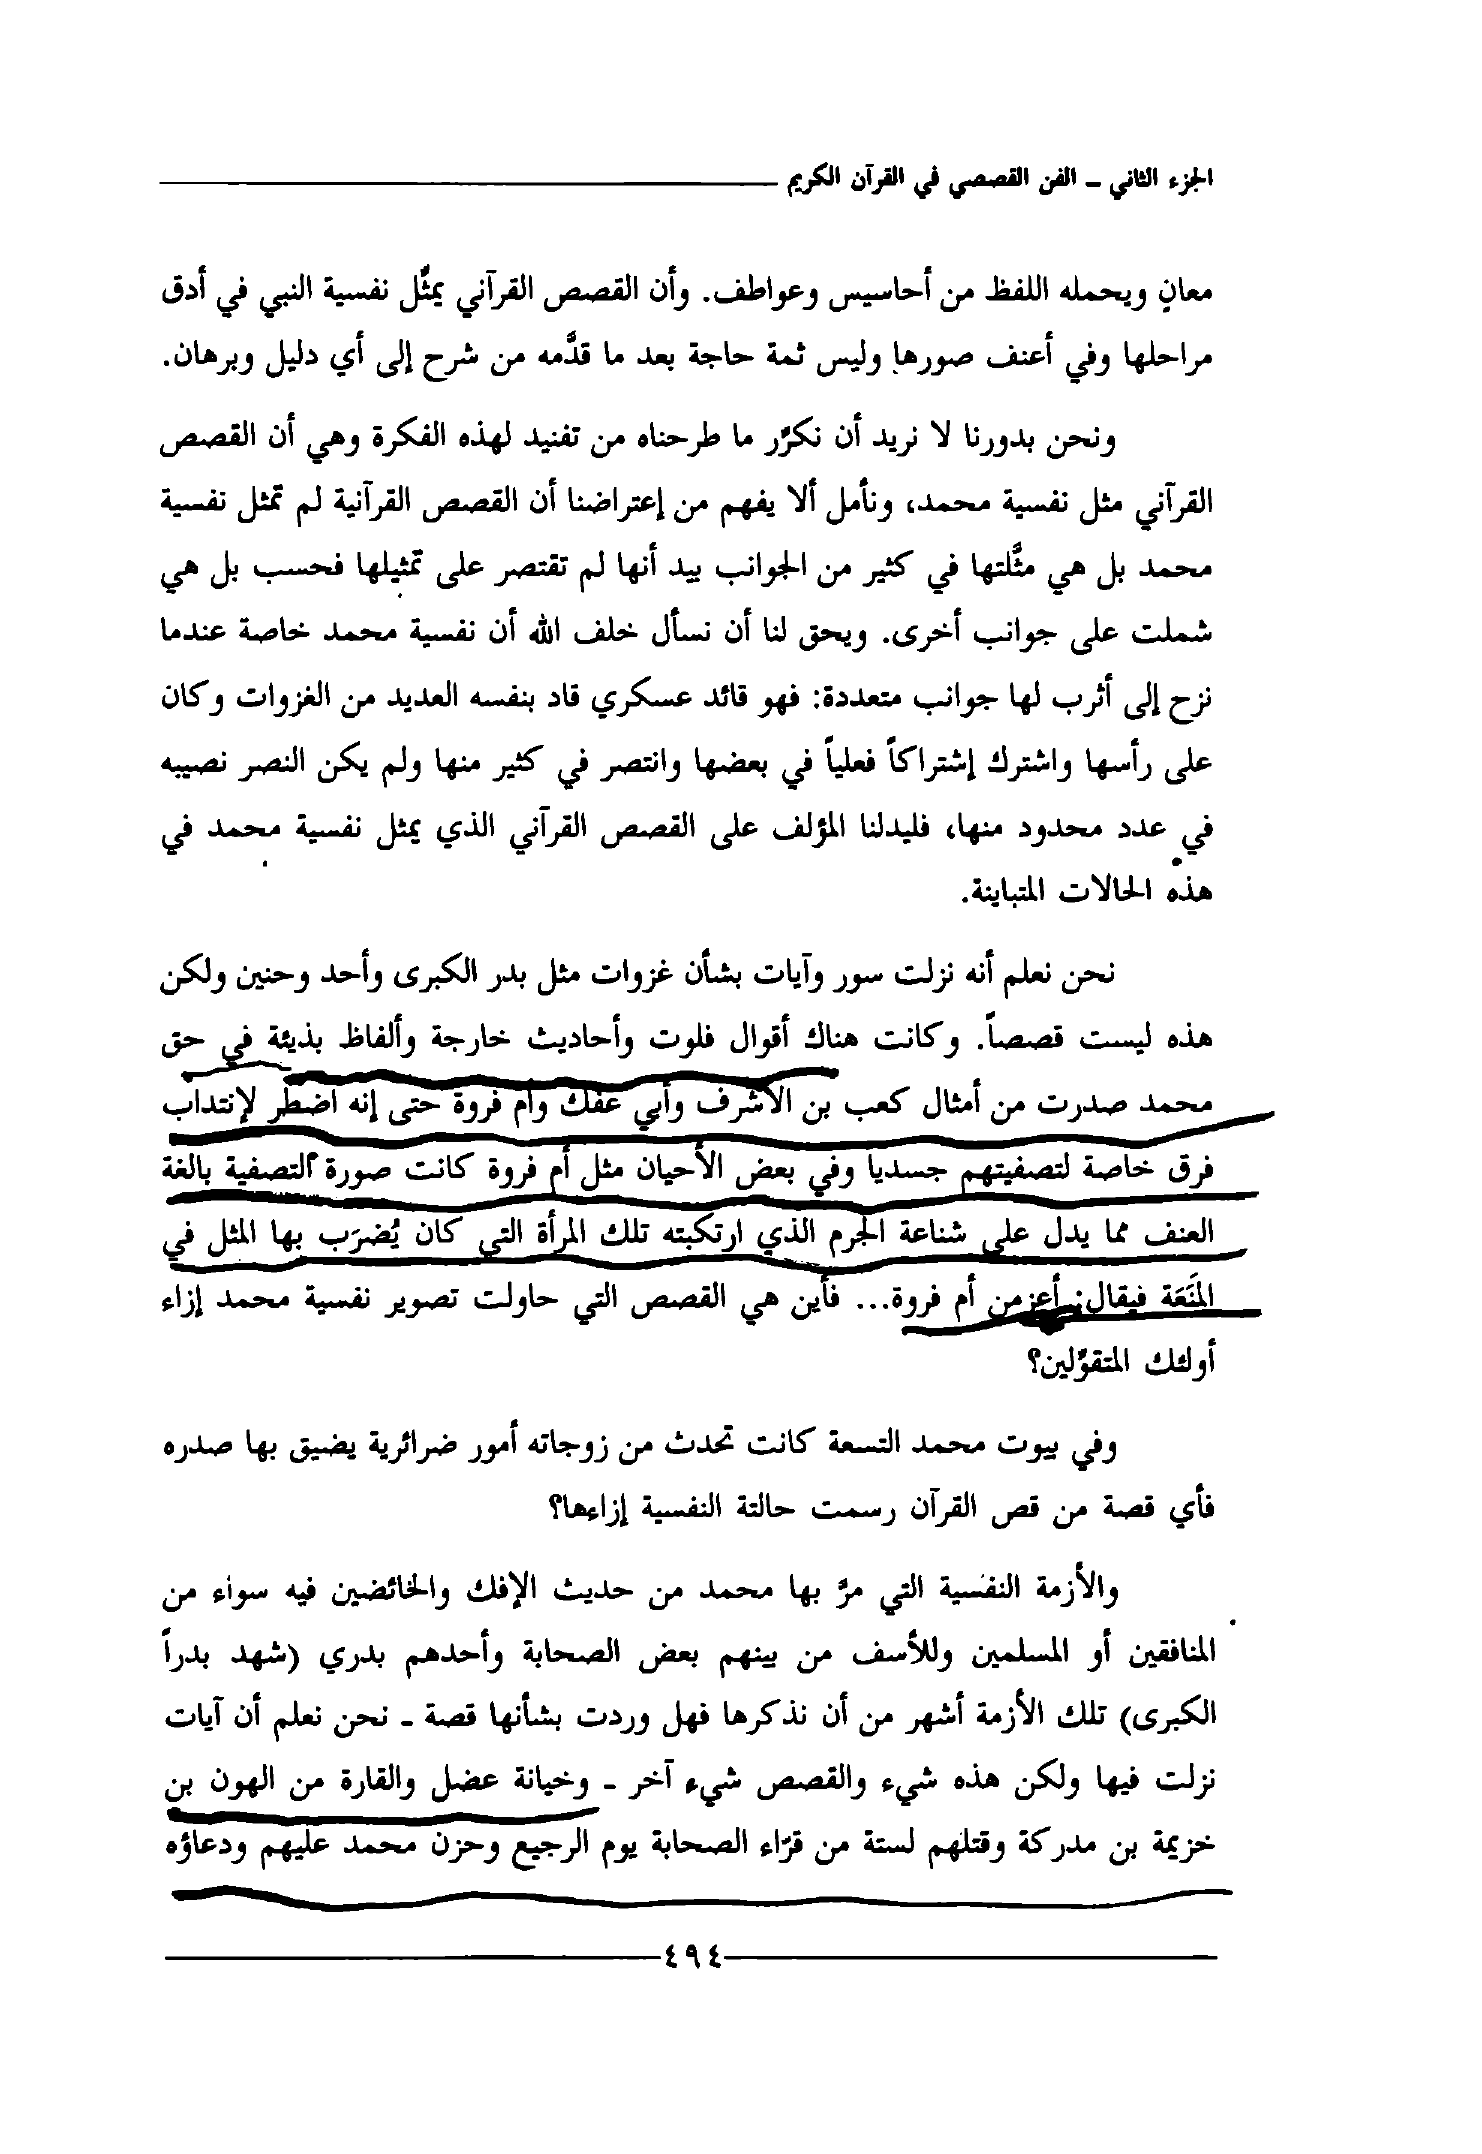 الجزء الثاني ـ الفن القصصي في القرآن الكريم
معانٍ ويحمله اللفظ من أحاسيس وعواطف. وأن القصص القرآني يمثّل نفسية النبي في أدق
مراحلها وفي أعنف صورها وليس ثمة حاجة بعد ما قدَّمه من شرح إلى أي دليل وبرهان.
ونحن بدورنا لا نريد أن نكرّر ما طرحناه من تفنيد لهذه الفكرة وهي أن القصص
القرآني مثل نفسية محمد، ونأمل ألا يفهم من إعتراضنا أن القصص القرآنية لم تمثل نفسية
محمد بل هي مثَّلتها في كثير من الجوانب بيد أنها لم تقتصر على تمثيلها فحسب بل هي
شملت على جوانب أخرى. ويحق لنا أن نسأل خلف الله أن نفسية محمد خاصة عندما
نزح إلى أثرب لها جوانب متعددة: فهو قائد عسكري قاد بنفسه العديد من الغزوات وكان
على رأسها واشترك إشتراكاً فعلياً في بعضها وانتصر في كثير منها ولم يكن النصر نصيبه
في عدد محدود منها، فليدلنا المؤلف على القصص القرآني الذي يمثل نفسية محمد في
هذه الحالات المتباينة.
نحن نعلم أنه نزلت سور وآيات بشأن غزوات مثل بدر الكبرى وأحد وحنين ولكن
هذه ليست قصصاً. وكانت هناك أقوال فلوت وأحاديث خارجة وألفاظ بذيئة في حق
محمد صدرت من أمثال كعب بن الأشرف وأبي عفك وأم فروة حتى إنه اضطر لإنتداب
فرق خاصة لتصفيتهم جسديا وفي بعض الأحيان مثل أم فروة كانت صورة التصفية بالغة
العنف مما يدل على شناعة الجرم الذي ارتكبته تلك المرأة التي كان يُضرَب بها المثل في
المنَعَة فيقال: أعز من أم فروة... فأين هي القصص التي حاولت تصوير نفسية محمد إزاء
أولئك المتقوّلين؟
وفي بيوت محمد التسعة كانت تحدث من زوجاته أمور ضرائرية يضيق بها صدره
فأي قصة من قص القرآن رسمت حالتة النفسية إزاءها؟
والأزمة النفسية التي مرّ بها محمد من حديث الإفك والخائضين فيه سواء من
المنافقين أو المسلمين وللأسف من بينهم بعض الصحابة وأحدهم بدري (شهد بدراً
الكبرى) تلك الأزمة أشهر من أن نذكرها فهل وردت بشأنها قصة ـ نحن نعلم أن آيات
نزلت فيها ولكن هذه شيء والقصص شيء آخر ـ وخيانة عضل والقارة من الهون بن
خزيمة بن مدركة وقتلهم لستة من قرّاء الصحابة يوم الرجيع وحزن محمد عليهم ودعاؤه
٤٩٤